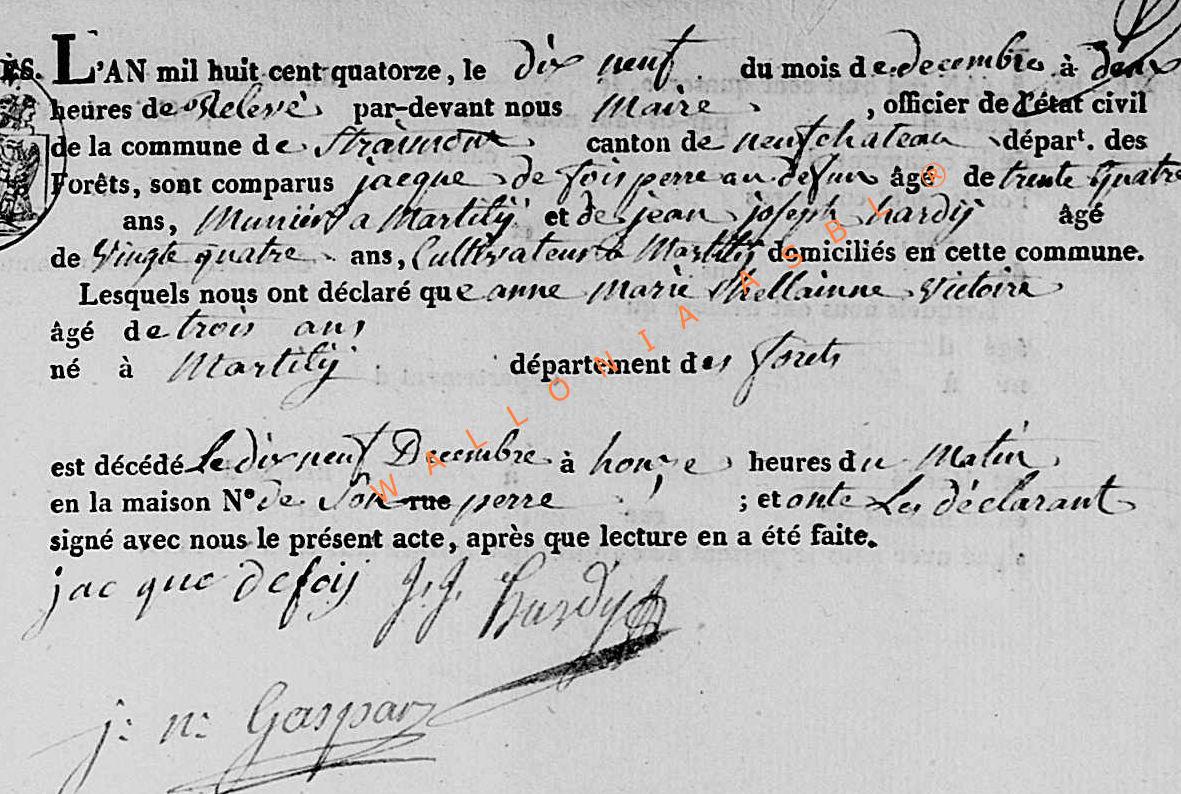 ÈS. L'AN mil huit cent quatorze, le dix neuf du mois de decembre à deux
heures de Relevé par-devant nous Maire , officier de l'état civil
de la commune de Straimont canton de neufchateau départ. des
Forêts, sont comparus jacque de fois perre au defun âgé de trente quatre
ans, Munier a Martilÿ et de jean joseph hardÿ âgé
de Vingte quatre ans, Cultivateur a Martilÿ domiciliés en cette commune.
Lesquels nous ont déclaré que anne Marie Victoire
âgé de trois ans
né à Martilÿ département des forets
est décédé le dix neuf Decembre à honze heures du Matin
en la maison N° de Son rue perre ; et onte Les déclarant
signé avec nous le présent acte, après que lecture en a été faite.
jacque defoij J.J. Hardy
j: n: Gaspar
WALLONIA ASBL ®